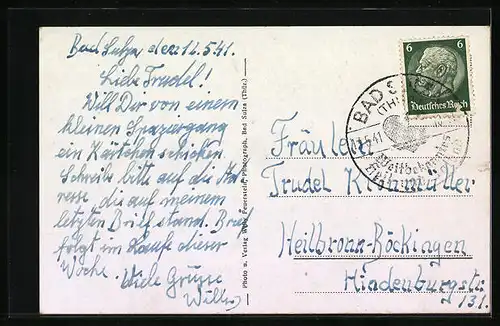 Bad Sulza den 12.5.41.
Liebe Trudel!
Will Dir von einem
kleinen Spaziergang
ein Kärtchen schicken
Schreibe bitte auf die Ad-
resse, die auf meinem
letzten Brief stand. Brief
folgt im Laufe dieser
Woche. Viele Grüsse
Willy
Photo u. Verlag Feuerstein, Photograph, Bad Sulza (Thür.)
6 6
Deutsches Reich
BAD SULZA
(THÜR)
5.41
Weltbekanntes
Fräulein
Trudel
Heilbronn-Böckingen
Hindenburgstr.
131.